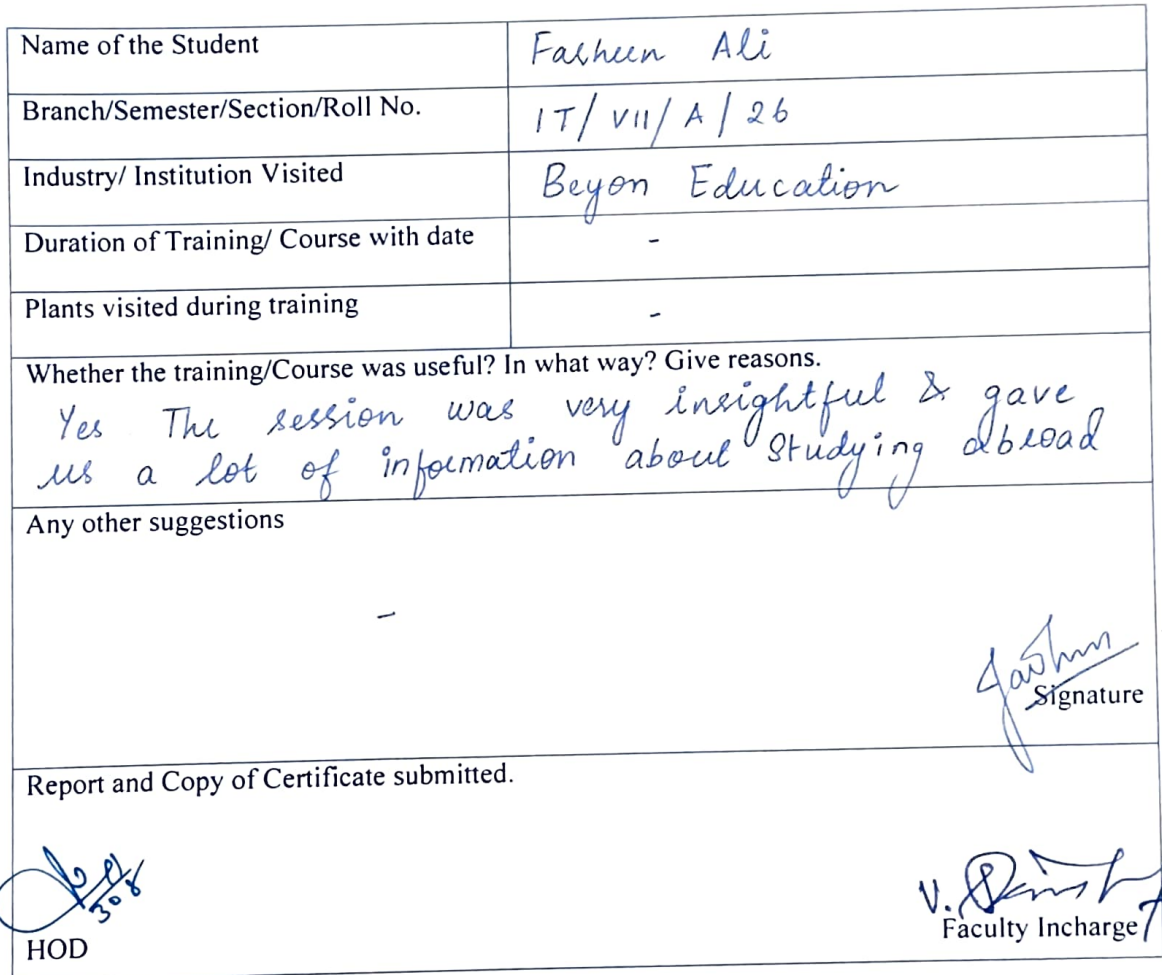 Name of the Student Fasheen Ali
Branch/Semester/Section/Roll No. IT/ VII/ A / 26
Industry/ Institution Visited Beyon Education
Duration of Training/ Course with date -
Plants visited during training -
Whether the training/Course was useful? In what way? Give reasons.
Yes The session was very insightful & gave
us a lot of information about studying abroad
Any other suggestions
-
Signature
Report and Copy of Certificate submitted.
V.
HOD
Faculty Incharge